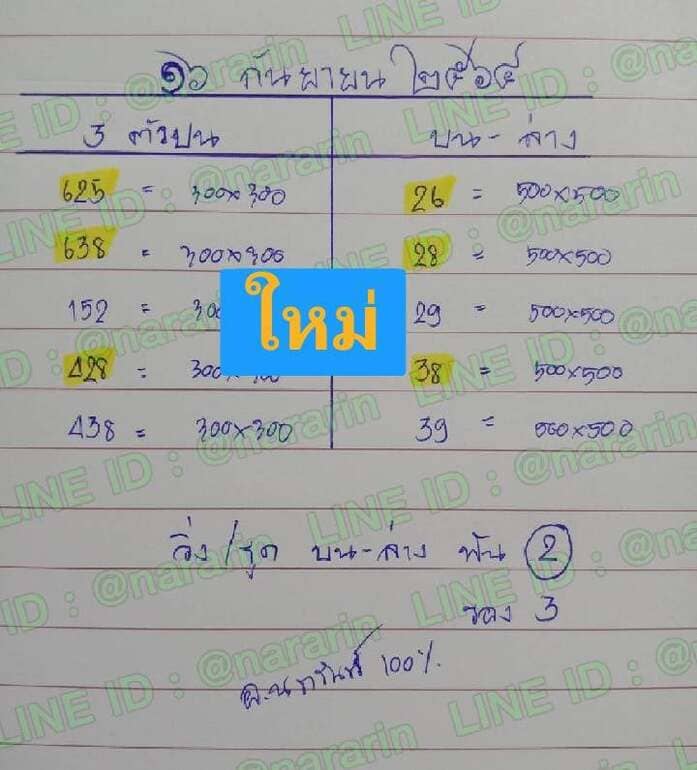 ๑๖ กันยายน ๒๕๖๕
3 ตัวบน บน-ล่าง
625 = 300×300 26 = 500×500
638 = 300×300 28 = 500×500
152 = 29 = 500×500
ใหม่
428 = 38 = 500×500
438 = 300×300 39 = 500×500
วิ่ง/รูด บน-ล่าง ฟัน 2
รอง 3
อ.นรารินทร์ 100%
LINE ID : @nararin